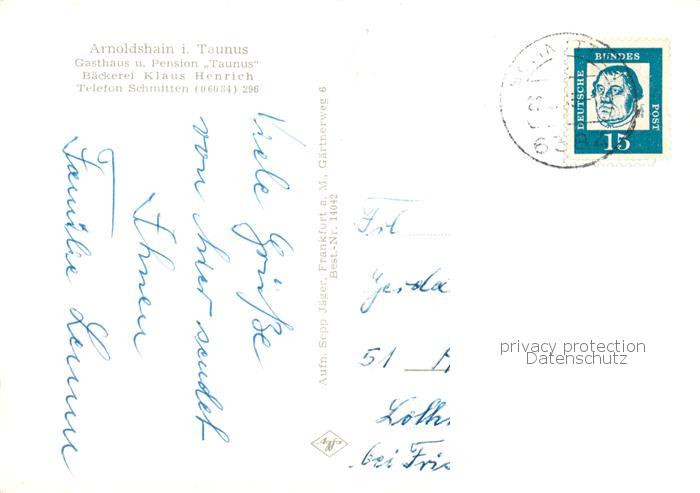 Arnoldshain i. Taunus
Gasthaus u. Pension „Taunus“
Bäckerei Klaus Henrich
Telefon Schmitten (06084) 296
Viele Grüße
von hier sendet
Ihnen
Familie
Aufn. Sepp Jäger, Frankfurt a. M., Gärtnerweg 6
Best.-Nr. 14042
DEUTSCHE BUNDES POST
15
Frl
Gerda
51
bei
privacy protection
Datenschutz